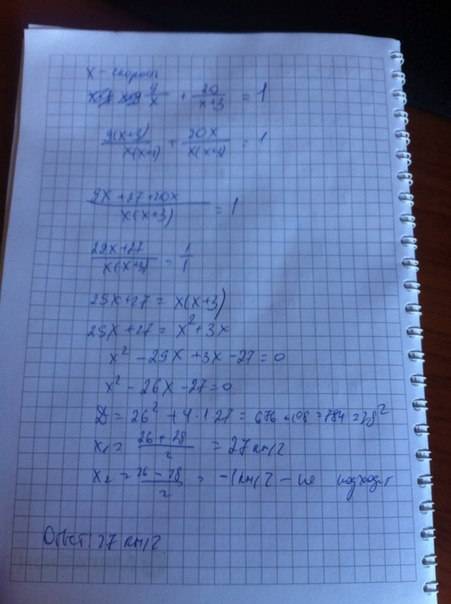 x - скорость
9/x + 20/(x+3) = 1
9(x+3)/x(x+3) + 20x/x(x+3) = 1
9x+27+20x/x(x+3) = 1
29x+27/x(x+3) = 1/1
29x+27 = x(x+3)
29x+27 = x²+3x
x² - 29x + 3x - 27 = 0
x² - 26x - 27 = 0
D = 26² + 4·1·27 = 676 + 108 = 784 = 28²
x₁ = 26 + 28/2 = 27 км/ч
x₂ = 26 - 28/2 = -1 км/ч - не подходит
Ответ: 27 км/ч